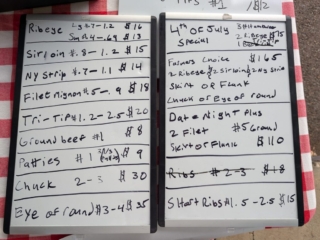 #1
1/$2
Ribeye Lg #.7-1.2 $16
Sm #.4-.69 $13
Sirloin #.8-1.2 $15
NY Strip #.7-1.1 $14
Filet Mignon #.5-.9 $18
Tri-Tip #1.2-2.5 $20
Ground beef #1 $8
Patties #1 $9
Chuck 2-3 $30
Eye of round #3-4 $35
4th of July
Special
2 Ribeye $75
Farmers Choice $165
2 Ribeye 2 Sirloin 2 NY Strip
Skirt or Flank
Chuck or Eye of round
Date Night Plus
2 Filet #5 Ground
Skirt or Flank $110
Ribs #2-3 $18
Short Ribs #1.5-2.5 $15